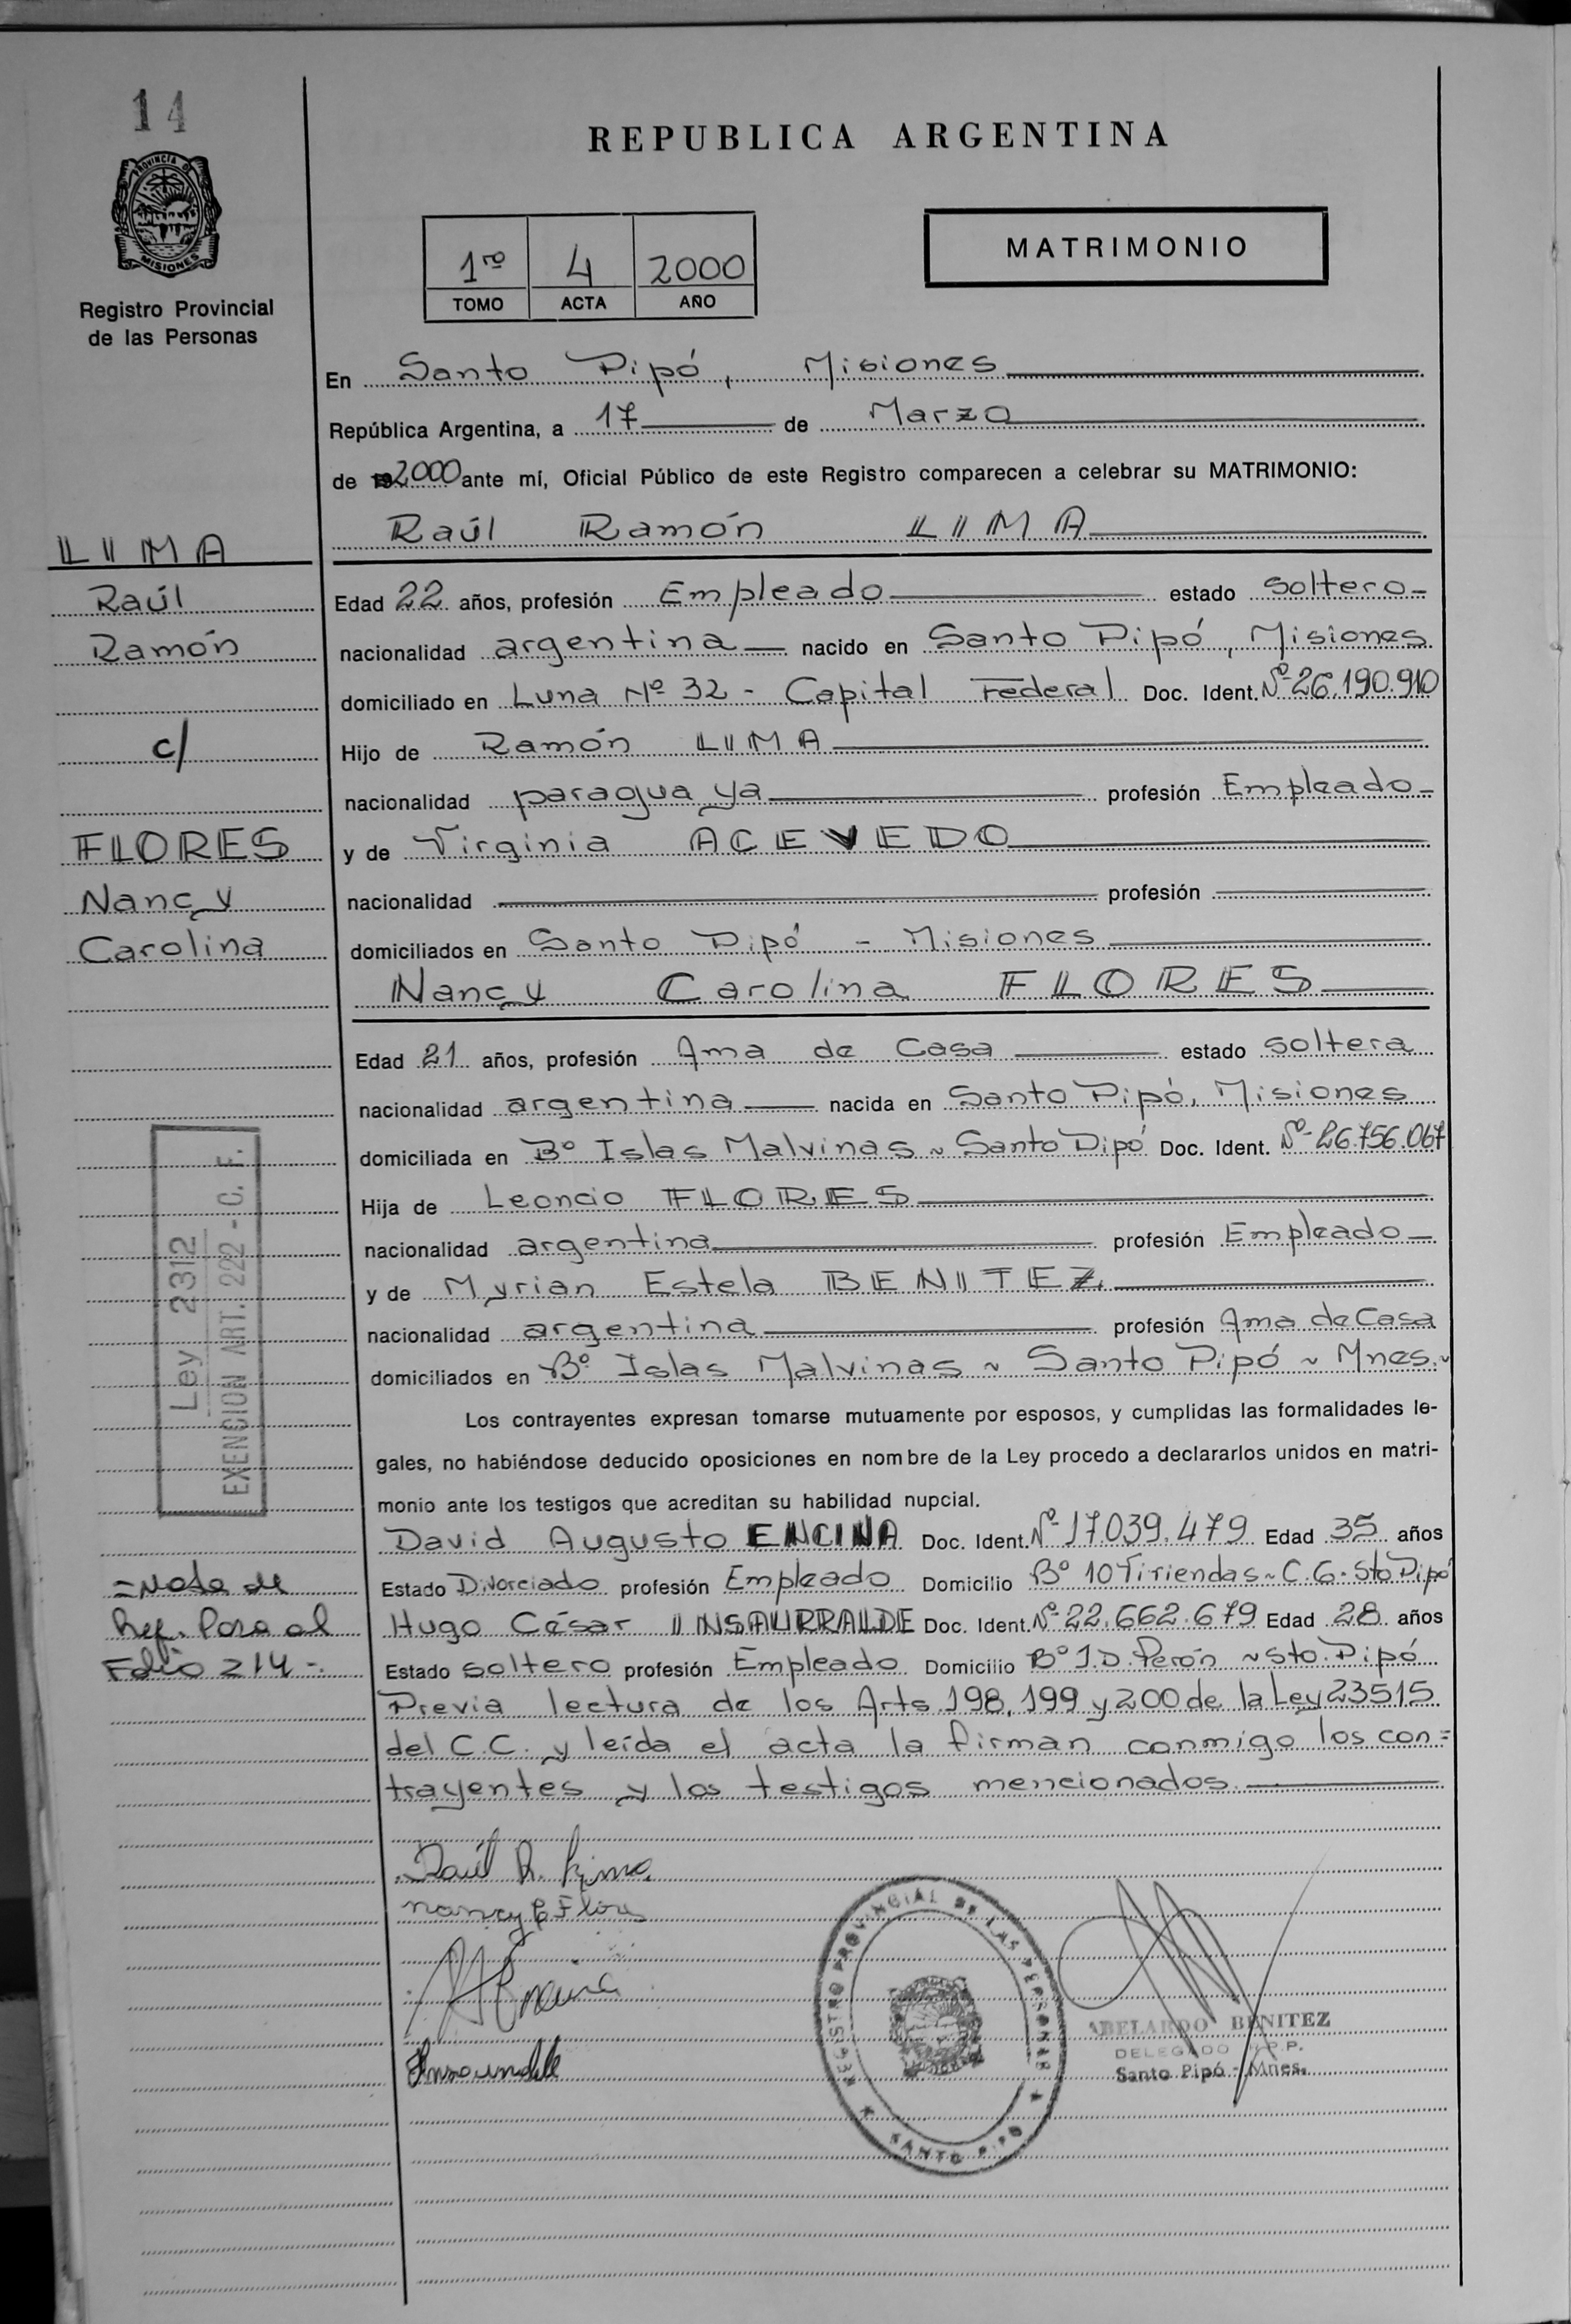 14
PROVINCIA DE
MISIONES
Registro Provincial
de las Personas
REPUBLICA ARGENTINA
1ro 4 2000
TOMO ACTA AÑO
MATRIMONIO
En Santo Pipó, Misiones
República Argentina, a 17 de Marzo
de 2000 ante mí, Oficial Público de este Registro comparecen a celebrar su MATRIMONIO:
Raúl Ramón LIMA
LIMA
Raúl
Ramón
c/
FLORES
Nancy
Carolina
Edad 22 años, profesión Empleado estado soltero-
nacionalidad argentina nacido en Santo Pipó, Misiones
domiciliado en Luna Nº 32 - Capital Federal Doc. Ident. Nº 26.190.910
Hijo de Ramón LIMA
nacionalidad paraguaya profesión Empleado-
y de Virginia ACEVEDO
nacionalidad profesión
domiciliados en Santo Pipó - Misiones
Nancy Carolina FLORES
Edad 21 años, profesión Ama de Casa estado soltera
nacionalidad argentina nacida en Santo Pipó, Misiones
domiciliada en Bº Islas Malvinas ~ Santo Pipó Doc. Ident. Nº 26.756.067
Hija de Leoncio FLORES
nacionalidad argentina profesión Empleado-
y de Myrian Estela BENITEZ
nacionalidad argentina profesión Ama de Casa
domiciliados en Bº Islas Malvinas ~ Santo Pipó ~ Mnes.~
Ley 2312
EXENCION ART. 222 - C. F.
Los contrayentes expresan tomarse mutuamente por esposos, y cumplidas las formalidades le-
gales, no habiéndose deducido oposiciones en nombre de la Ley procedo a declararlos unidos en matri-
monio ante los testigos que acreditan su habilidad nupcial.
David Augusto ENCINA Doc. Ident. Nº 17.039.479 Edad 35 años
Estado Divorciado profesión Empleado Domicilio Bº 10 Viviendas ~ C.G. Sto Pipó
Hugo César INSAURRALDE Doc. Ident. Nº 22.662.679 Edad 28 años
Estado soltero profesión Empleado Domicilio Bº J.D. Perón ~ Sto. Pipó
=Nota de
Ref. Pasa al
Folio 214-.
Previa lectura de los Arts. 198, 199 y 200 de la Ley 23515
del C.C. y leída el acta la firman conmigo los con=
trayentes y los testigos mencionados
Raúl R. Lima
nancy C Flores
Encina
Insaurralde
REGISTRO PROVINCIAL DE LAS PERSONAS
SANTO PIPO
ABELARDO BENITEZ
DELEGADO R.P.P.
Santo Pipó - Mnes.